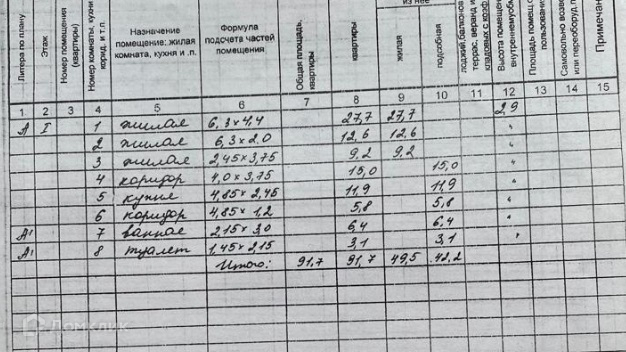 из нее
Литера по плану
Этаж
Номер помещения (квартиры)
Номер комнаты, кухни корид. и т.п.
Назначение
помещение: жилая
комната, кухня и .п.
Формула
подсчета частей
помещения
Общая площадь,
квартиры
квартиры
жилая
подсобная
Высота помещен
Площадь помещ.
пользован
Самовольно возве
или переоборуд.
Примечан
1 2 3 4 5 6 7 8 9 10 11 12 13 14 15
А I 1 жилая 6,3×4,4 27,7 27,7 2,9
2 жилая 6,3×2,0 12,6 12,6 "
3 жилая 2,45×3,75 9,2 9,2 "
4 коридор 4,0×3,75 15,0 15,0 "
5 кухня 4,85×2,45 11,9 11,9 "
6 коридор 4,85×1,2 5,8 5,8 "
А¹ 7 ванная 2,15×3,0 6,4 6,4 "
А¹ 8 туалет 1,45×2,15 3,1 3,1 "
Итого: 91,7 91,7 49,5 42,2
Домклик